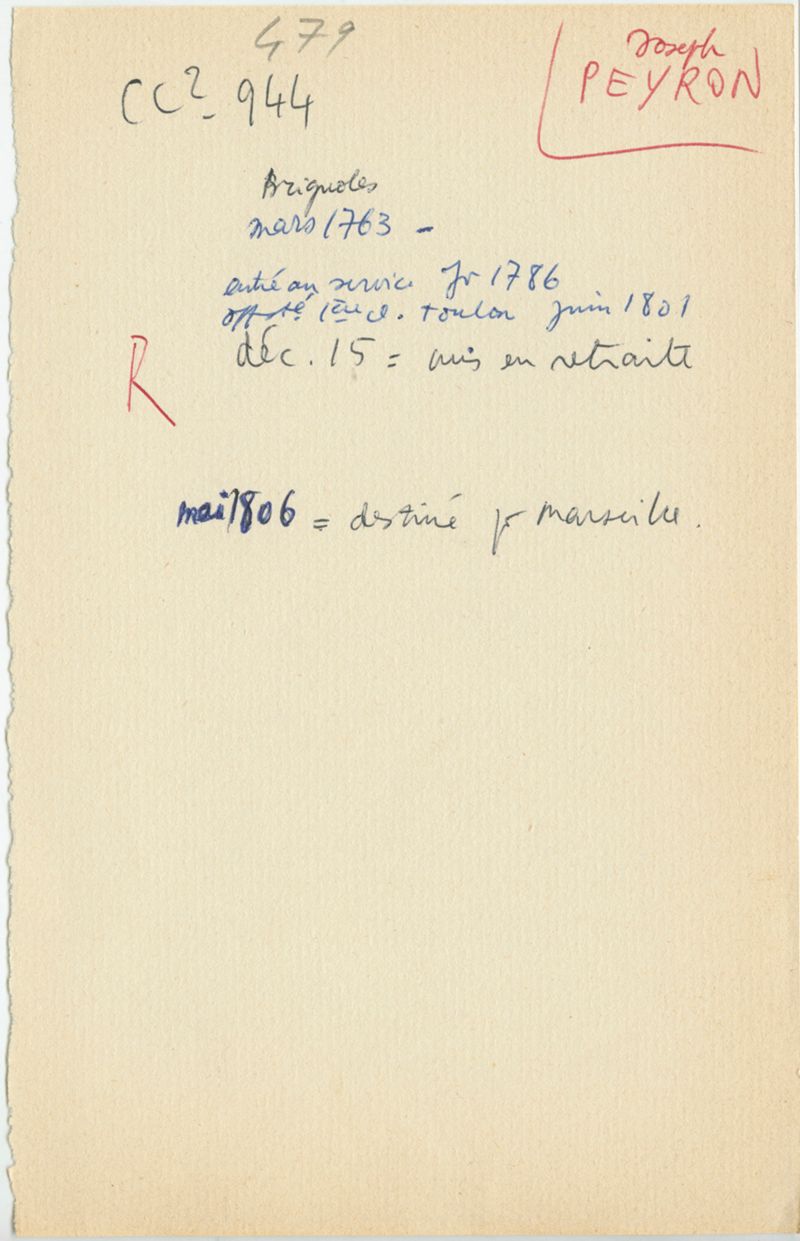 479
Joseph
PEYRON
CC2 - 944
Brignoles
mars 1763 -
entré au service Jr 1786
off. sté 1ère cl. Toulon juin 1801
R
déc. 15 = mis en retraite
mai 1806 = destiné pr Marseille.